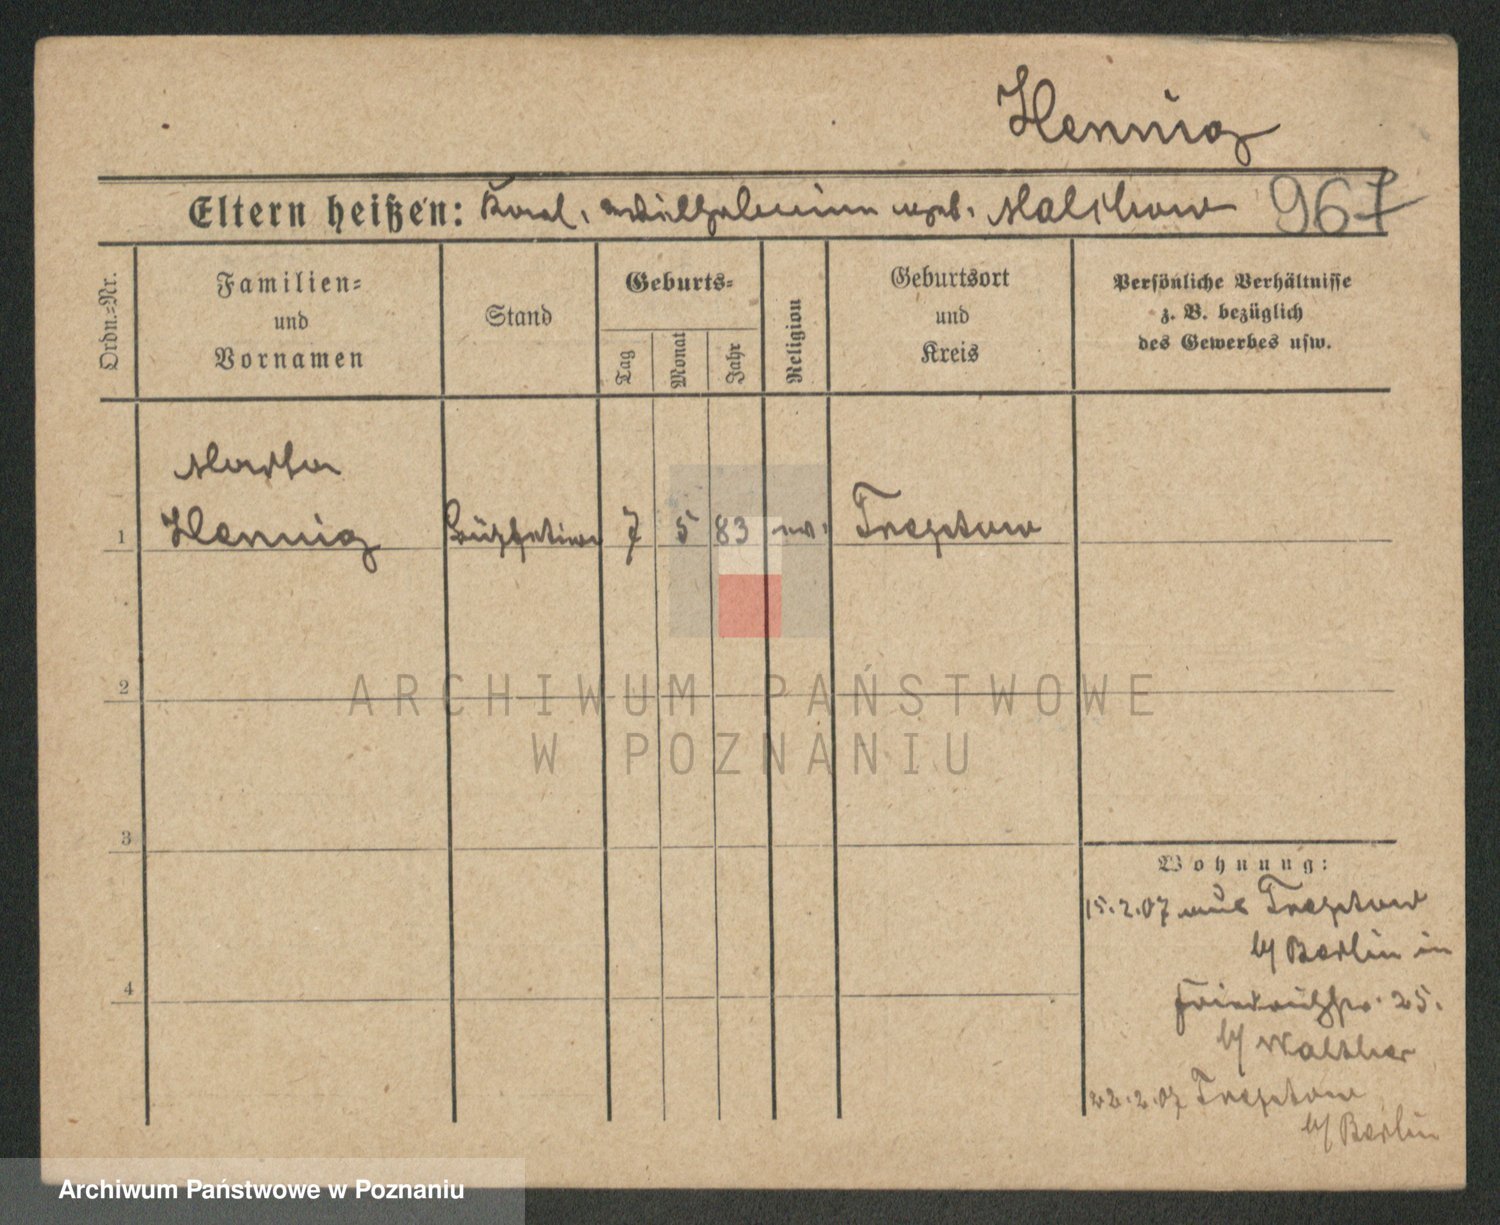 Hennig
Eltern heißen: Karl, Wilhelmine geb. Malchow 967
Ordn.-Nr.
Familien-
und
Vornamen
Stand
Geburts-
Tag
Monat
Jahr
Religion
Geburtsort
und
Kreis
Persönliche Verhältnisse
z. B. bezüglich
des Gewerbes usw.
Martha
1 Hennig 7 5 83 ev. Treptow
2
ARCHIWUM PAŃSTWOWE
W POZNANIU
3
4
Wohnung:
15.2.07 aus Treptow
b/ Berlin in
Friedrichstr. 25.
b/ Walther
22.2.07 Treptow
b/ Berlin
Archiwum Państwowe w Poznaniu